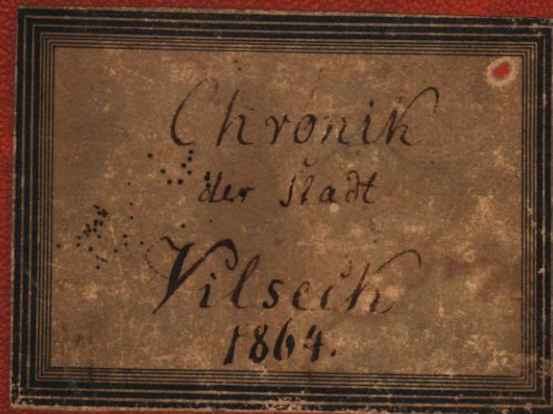 Chronik
der Stadt
Vilseck
1864.